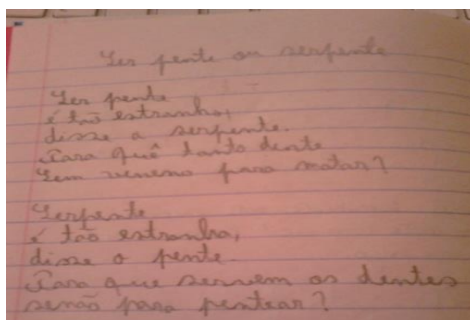 Ser pente ou serpente
Ser pente
é tão estranho,
disse a serpente.
Para quê tanto dente
sem veneno para matar?
Serpente
é tão estranho,
disse o pente.
Para que servem os dentes
senão para pentear?